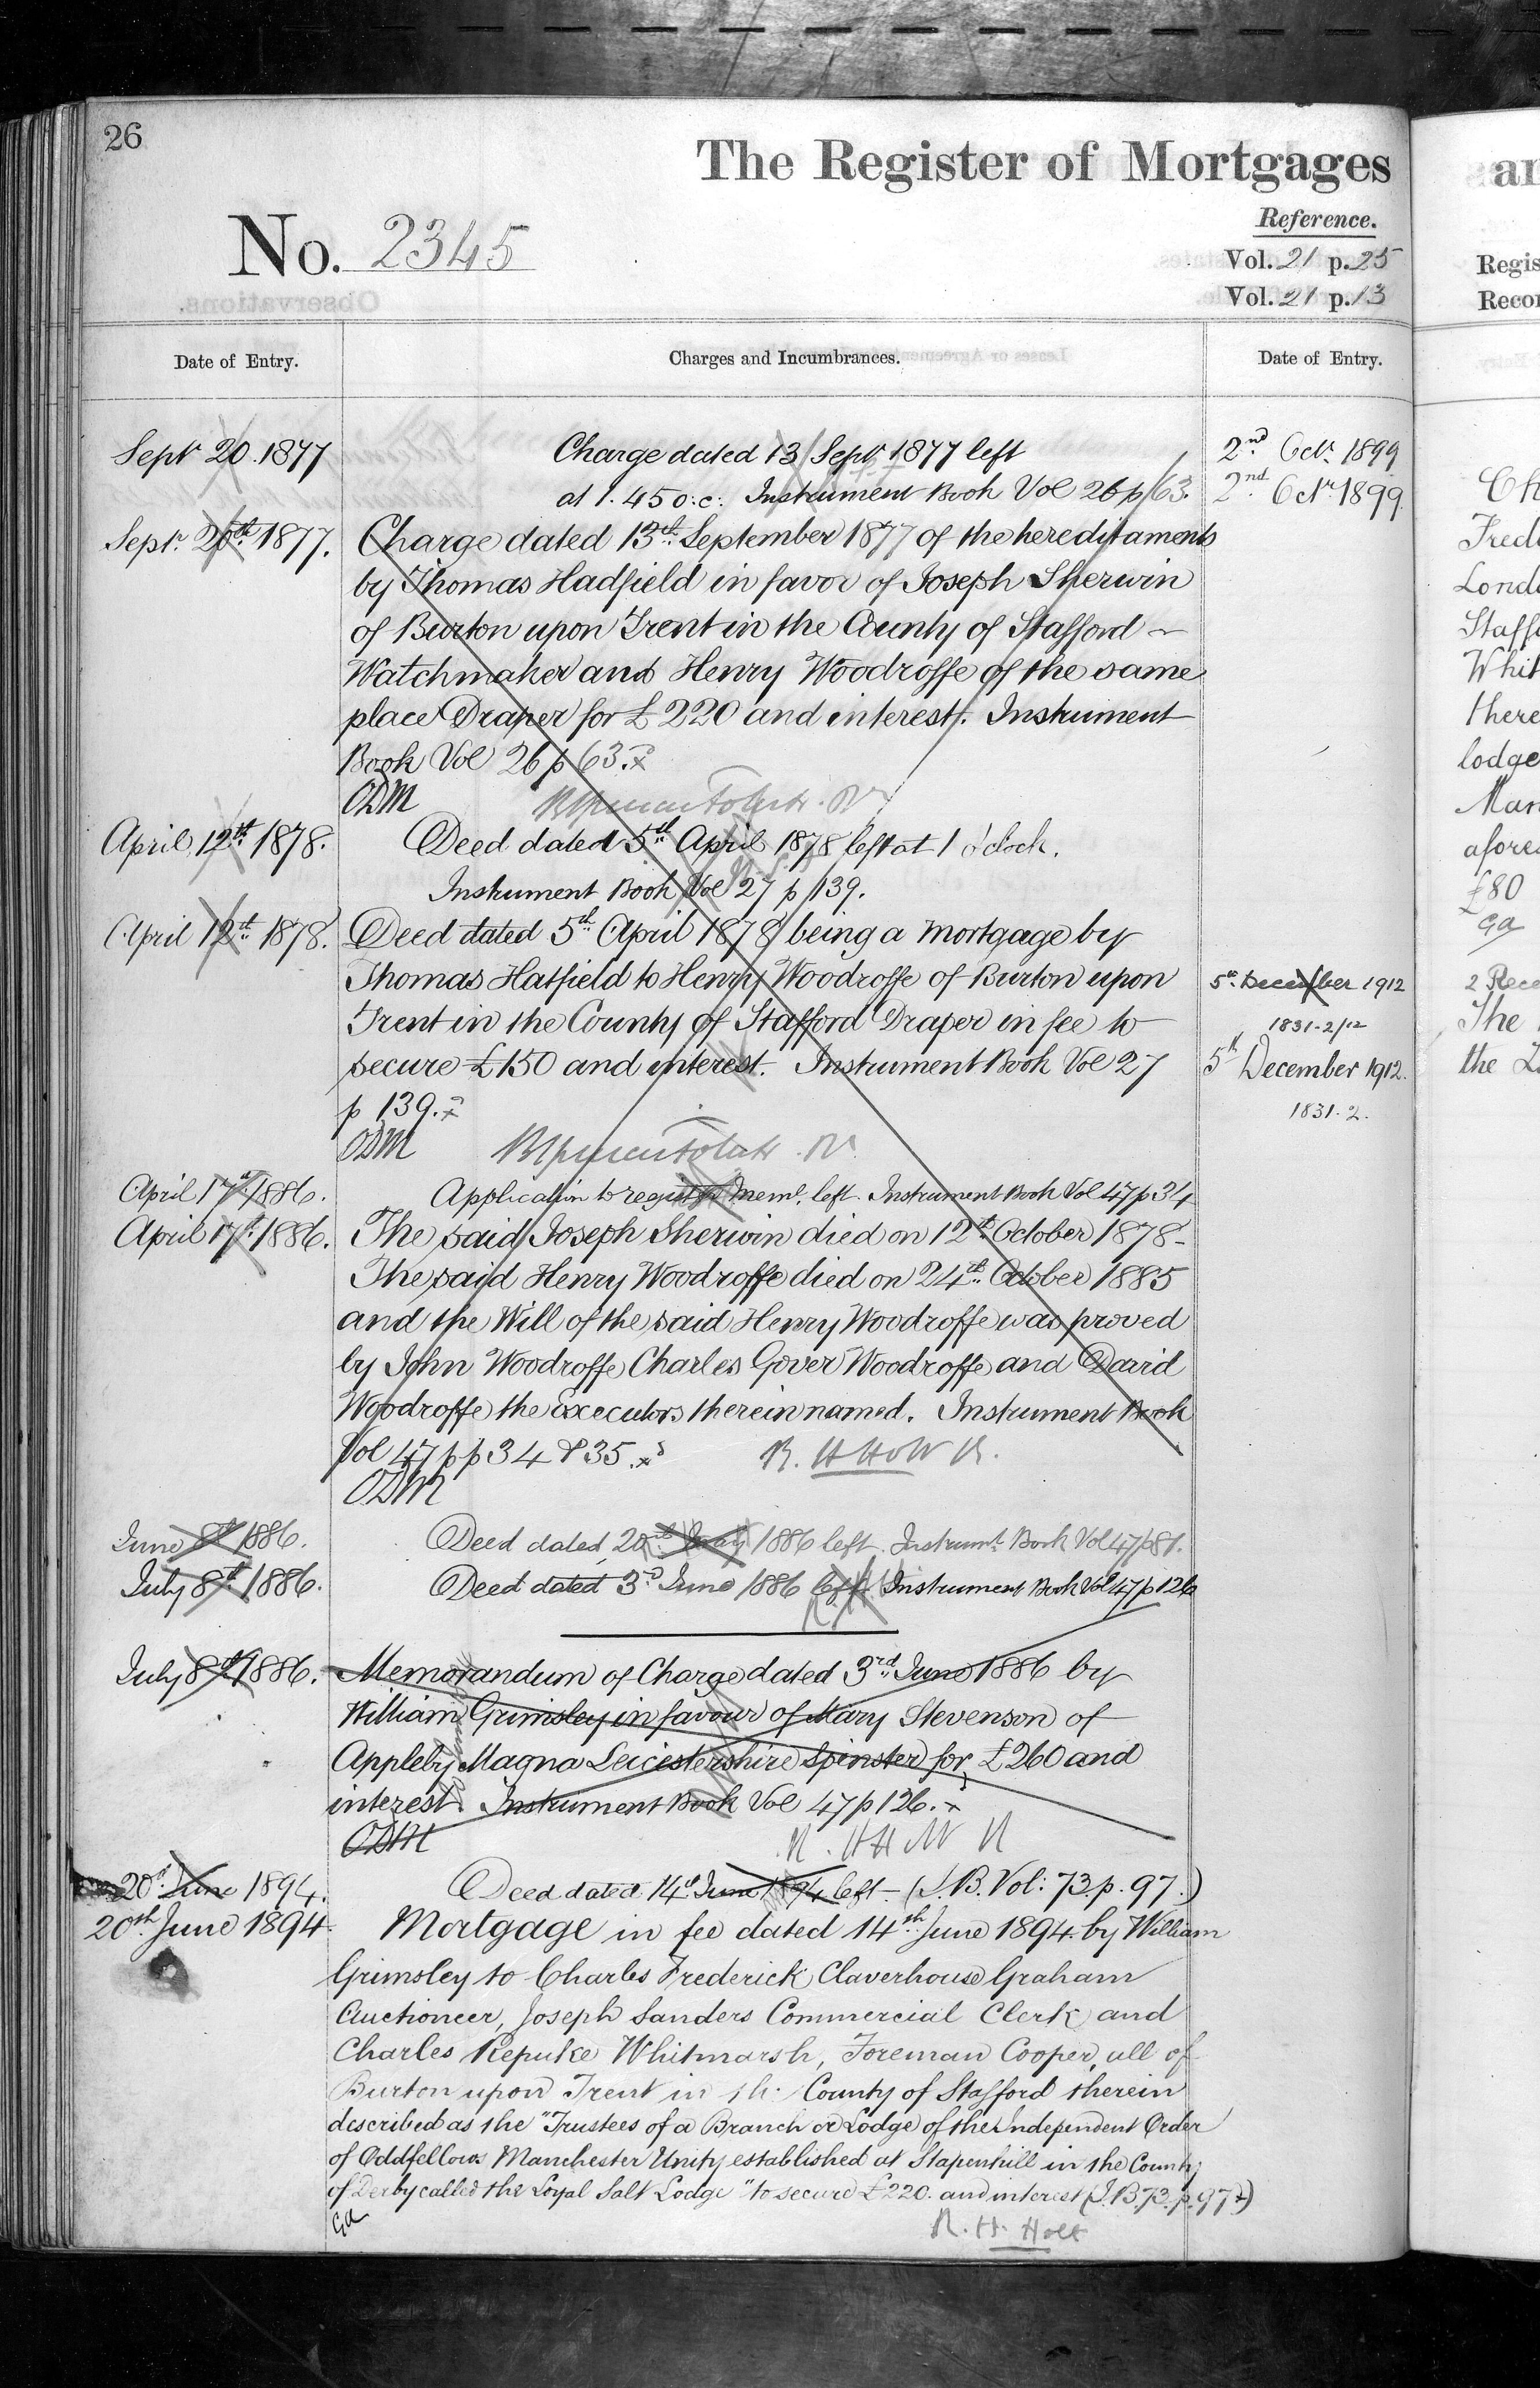 26
The Register of Mortgages
No. 2345
Reference.
Vol. 21 p. 25
Vol. 21 p. 13
Date of Entry.
Charges and Incumbrances.
Date of Entry.
Sept 20. 1877
Charge dated 13 Sept 1877 left
at 1.45 o.c. Instrument Book Vol 26 p 63.
2nd Octr. 1899
2nd Octr. 1899
Septr. 20th 1877.
Charge dated 13th September 1877 of the hereditaments
by Thomas Hadfield in favor of Joseph Sherwin
of Burton upon Trent in the County of Stafford
Watchmaker and Henry Woodroffe of the same
place Draper for £220 and interest. Instrument
Book Vol 26 p 63.
ODM
April 12th 1878.
Deed dated 5th April 1878 left at 1 o'clock.
Instrument Book Vol 27 p 139.
April 12th 1878.
Deed dated 5th April 1878 being a Mortgage by
Thomas Hatfield to Henry Woodroffe of Burton upon
Trent in the County of Stafford Draper in fee to
secure £150 and interest. Instrument Book Vol 27
p 139.
ODM
5th December 1912
1831-2/12
5th December 1912.
1831-2.
April 17th 1886.
Application to register Meml. left. Instrument Book Vol 47 p 34
April 17th 1886.
The said Joseph Sherwin died on 12th October 1878-
The said Henry Woodroffe died on 24th October 1885
and the Will of the said Henry Woodroffe was proved
by John Woodroffe Charles Gover Woodroffe and David
Woodroffe the Executors therein named. Instrument Book
Vol 47 pp 34 & 35.
R. H Holt R.
ODM
June 8th 1886.
Deed dated 20th May 1886 left. Instrumt. Book Vol 47 p 81.
July 8th 1886.
Deed dated 3rd June 1886 left. Instrument Book Vol 47 p 126
July 8th 1886.
Memorandum of Charge dated 3rd June 1886 by
William Grimsley in favour of Mary Stevenson of
Appleby Magna Leicestershire Spinster for £260 and
interest. Instrument Book Vol 47 p 126.
ODM
R. H Holt R
20th June 1894.
Deed dated 14th June 1894 left - (I.B. Vol: 73. p. 97.)
20th June 1894.
Mortgage in fee dated 14th June 1894 by William
Grimsley to Charles Frederick Claverhouse Graham
Auctioneer, Joseph Sanders Commercial Clerk and
Charles Whitmarsh, Foreman Cooper, all of
Burton upon Trent in the County of Stafford therein
described as the "Trustees of a Branch or Lodge of the Independent Order
of Oddfellows Manchester Unity established at Stapenhill in the County
of Derby called the Loyal Salt Lodge" to secure £220. and interest (I.B 73. p. 97)
Ga
R. H. Holt
an
Regis
Recor
Ch
Fred
Londo
Staff
Whit
there
lodge
Man
afore
£80
Ga
2 Rece
The
the L